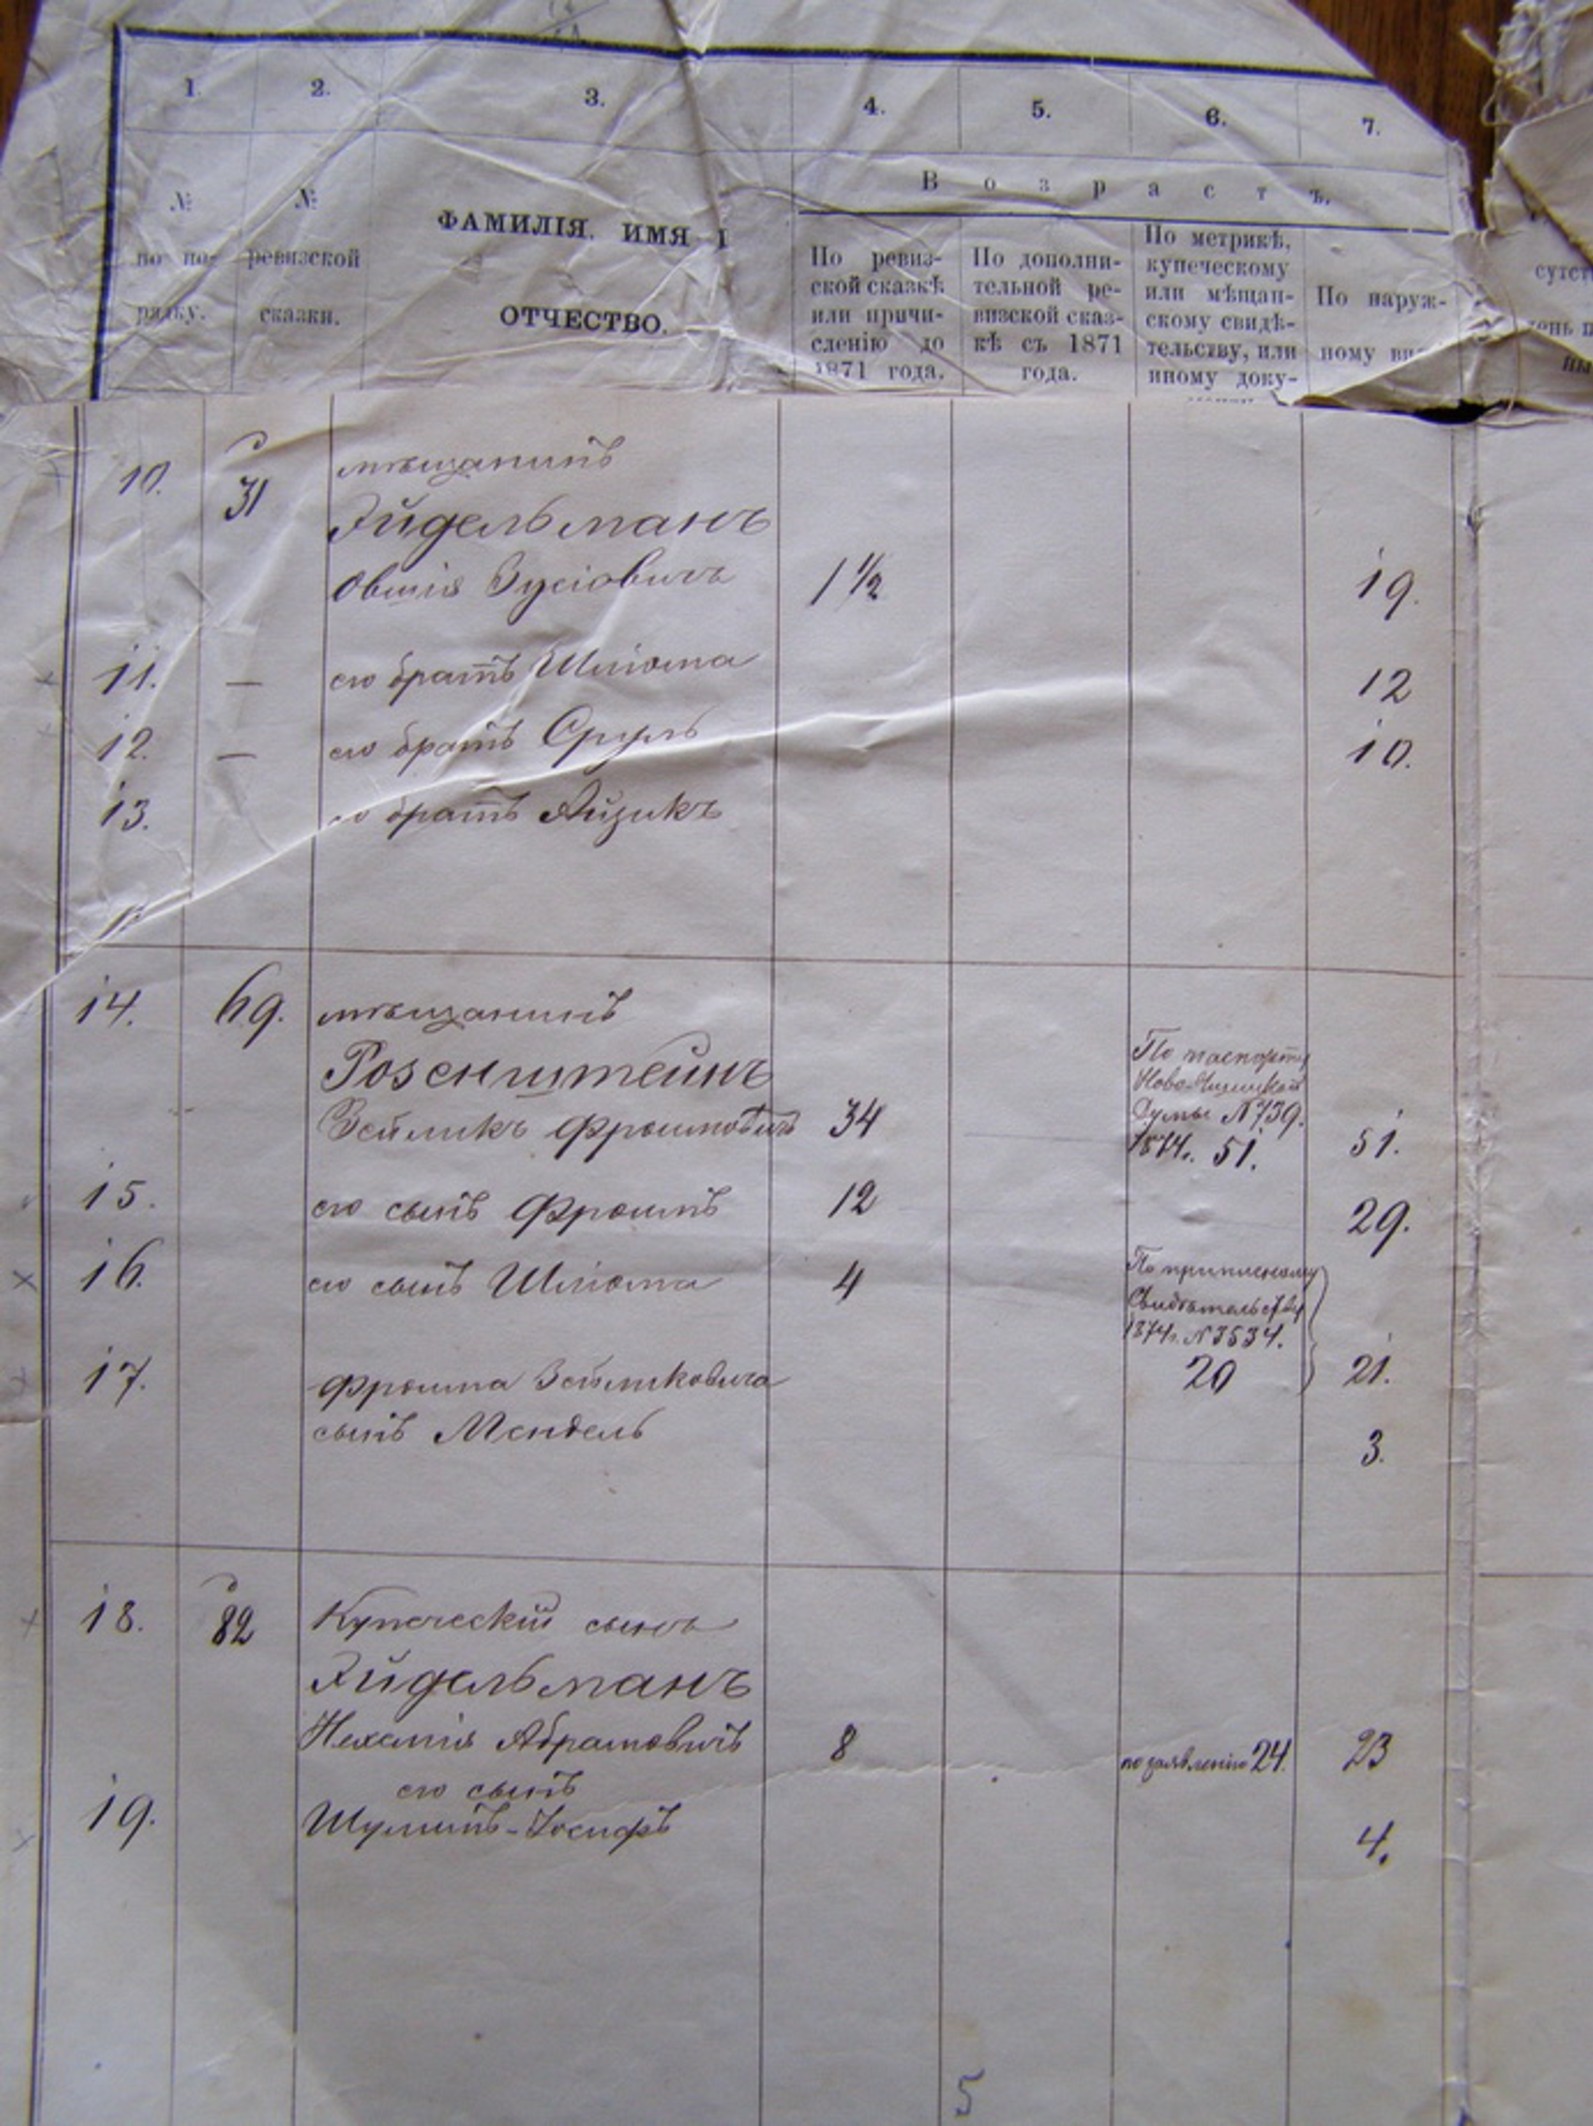 1. 2. 3. 4. 5. 6. 7.
В о з р а с т ъ.
№ по по-
рядку.
№
ревизской
сказки.
ФАМИЛІЯ, ИМЯ І
ОТЧЕСТВО.
По ревиз-
ской сказкѣ
или причи-
сленію до
1871 года.
По дополни-
тельной ре-
визской сказ-
кѣ съ 1871
года.
По метрикѣ,
купеческому
или мѣщан-
скому свидѣ-
тельству, или
иному доку-
По наруж-
ному
10. 31 мѣщанинъ
Эйдельманъ
Овшія Зусіовичъ 1 1/2 19.
11. — его братъ Шліома 12
12. — его братъ Сруль 10.
13. его братъ Айзикъ
14. 69. мѣщанинъ
Розенштейнъ
Зейликъ Фроимовичъ 34 51.
По паспорту
Ново-Ушицкой
Думы № 739.
1874г. 51.
15. его сынъ Фроимъ 12 29.
16. его сынъ Шліома 4 21.
По приписному
Свидѣтельству
1874г. № 3534.
20
17. Фроима Зейликовича
сынъ Мендель 3.
18. 82 Купеческій сынъ
Эйдельманъ
Нехемія Абрамовичъ 8 по заявленію 24. 23
его сынъ
19. Шулимъ-Іосифъ 4.
5